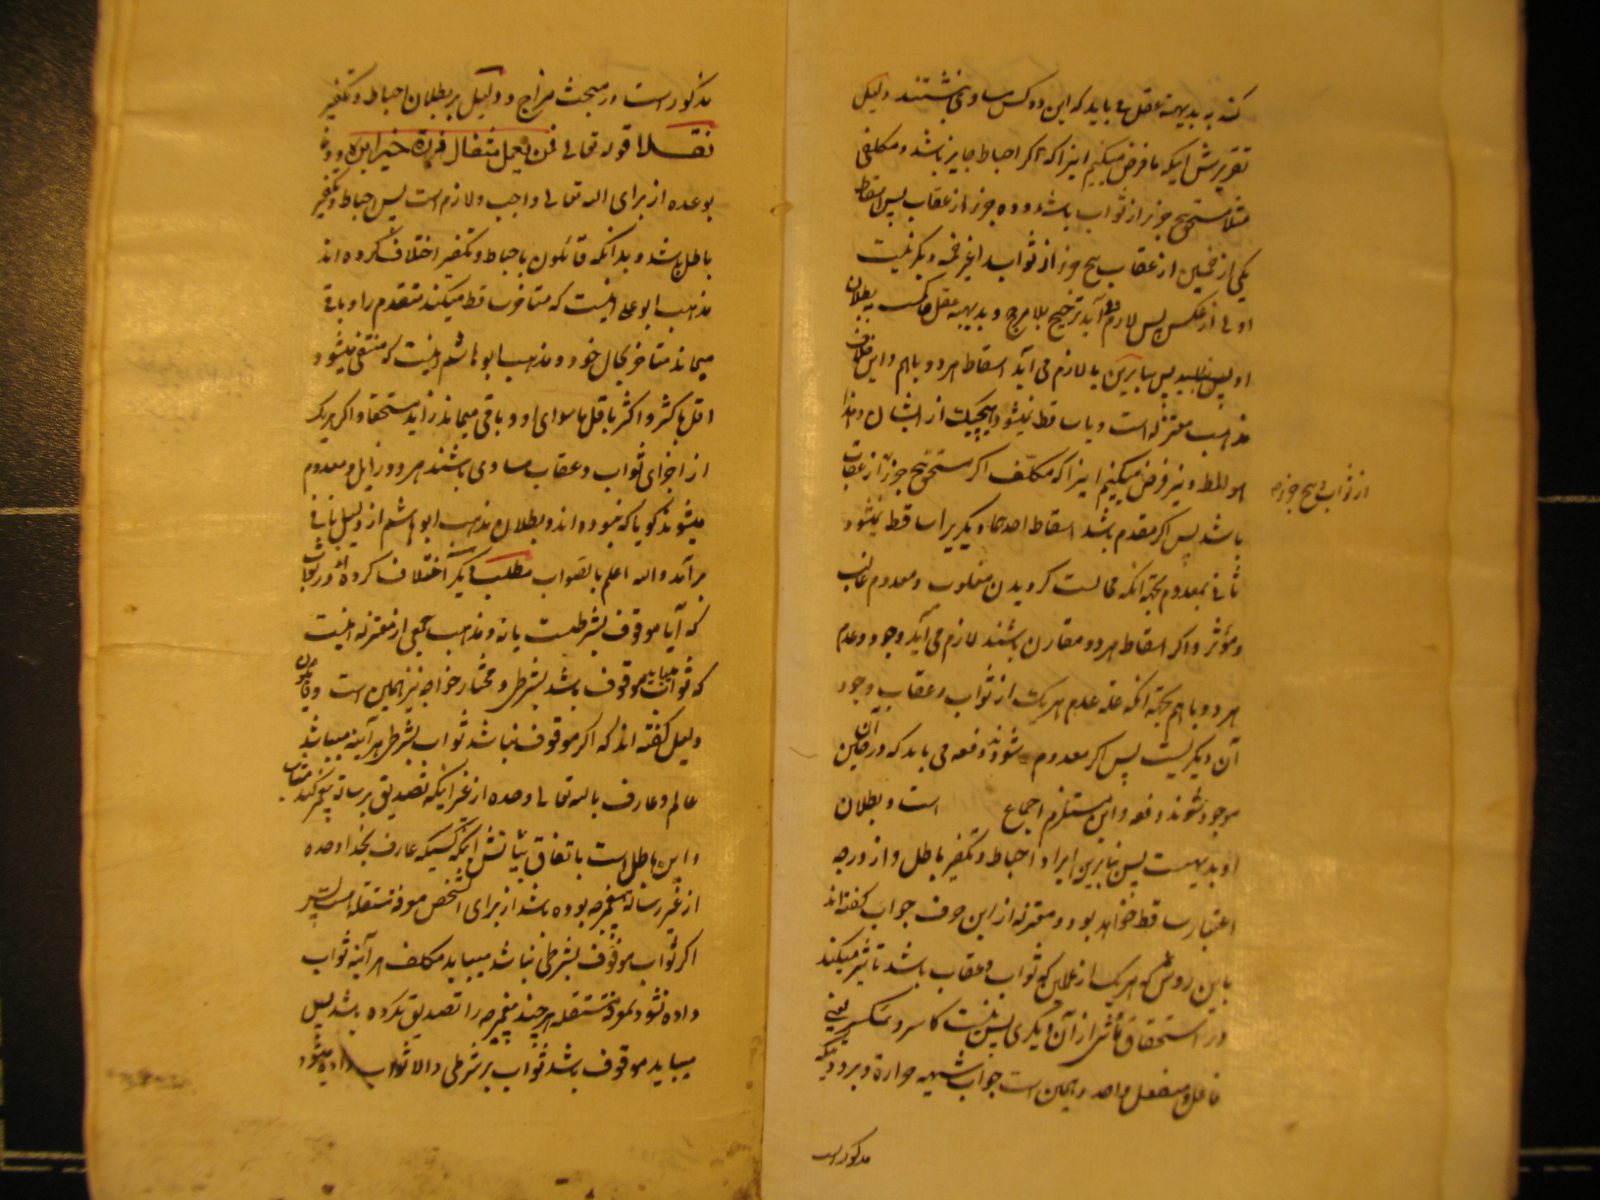 کند به بدیهه عقل می باید که این دو کس مساوی نشستند دلیل
تقریرش اینکه ما فرض میکنیم اینرا که اگر احباط جایز باشد و مکلفی
مثلا مستحق پنج جزو از ثواب باشد و ده جزو از عقاب پس اسقاط
یکی از خمسین از عقاب پنج جزو از ثواب را غیر خمسه دیگر نیست
اولی از عکس پس لازم می آید ترجیح بلا مرجح و بدیهه عقل حاکمست ببطلان
او پس بنابرین یا لازم می آید اسقاط هر دو باهم و این خلاف
مذهب معتزله است و یا ساقط نمیشود هیچیک از ایشان و هذا
هو المط و نیز فرض میکنیم اینرا که مکلف اگر مستحق پنج جزو از عقاب
از ثواب و پنج جزوم
باشد پس اگر مقدم باشد اسقاط احدهما دیگریرا ساقط نمیشود
ثانی بمعدوم بجهة آنکه محالست گردیدن مغلوب و معدوم غالب
و مؤثر و اگر اسقاط هر دو مقارن باشند لازم می آید وجود و عدم
هر دو باهم بجهة آنکه علة عدم هریک از ثواب و عقاب وجود
آن دیگریست پس اگر معدوم شوند دفعه می باید که در همان حین
موجود شوند دفعه و این مستلزم اجتماع است و بطلان
او بدیهیست پس بنابرین ایراد احباط و تکفیر باطل و از درجه
اعتبار ساقط خواهد بود و معتزله از این حرف جواب گفته اند
باین روش که هر یک از علاین که ثواب و عقاب باشد تاثیر میکنند
در استحقاق ناشی از آن دیگری پس نیست کاسر و منکسر یعنی
فاعل و منفعل واحد و همین است جواب شبهه حرارة و برودة که
مذکورست
مذکور است در مبحث مزاج و دلیل بر بطلان احباط و تکفیر
نقلا قوله تعالی فمن یعمل مثقال ذرة خیرا یره و وفا
بوعده از برای الله تعالی واجب و لازم است پس احباط و تکفیر
باطل باشد و بدانکه قائلون باحباط و تکفیر اختلاف کرده اند
مذهب ابو علی اینست که متاخر ساقط میکند متقدم را و باقی
میماند متاخر بحال خود و مذهب ابو هاشم اینست که منتفی میشود
اقل باکثر و اکثر باقل ما سوای او و باقی میماند زاید مستحقا و اگر هریک
از اجزای ثواب و عقاب مساوی باشند هر دو زایل و معدوم
میشوند گویا که نبوده اند و بطلان مذهب ابو هاشم از دلیل ثانی
برآمد والله اعلم بالصواب مطلب دیگر اختلاف کرده اند در ثواب
که آیا موقوف بشرطیست یا نه و مذهب جمعی از معتزله اینست
که ثواب میباید موقوف باشد بشرطی و مختار خواجه نیز همین است و قائلون
دلیل گفته اند که اگر موقوف نباشد ثواب بشرطی هر آینه میباید
عالم و عارف بالله تعالی وحده از غیر اینکه تصدیق برسالة پیغمبر کند مثاب
و این باطل است باتفاق بیانش آنکه کسیکه عارف بخدا وحده
از غیر رسالة پیغمبر بوده باشد از برای آن شخص معرفة مستقله است پس
اگر ثواب موقوف بشرطی نباشد میباید مکلف هر آینه ثواب
داده شود بمعرفة مستقله هر چند پیغمبر را تصدیق نکرده باشد پس
میباید موقوف باشد ثواب بر شرطی والا ثواب داده میشود